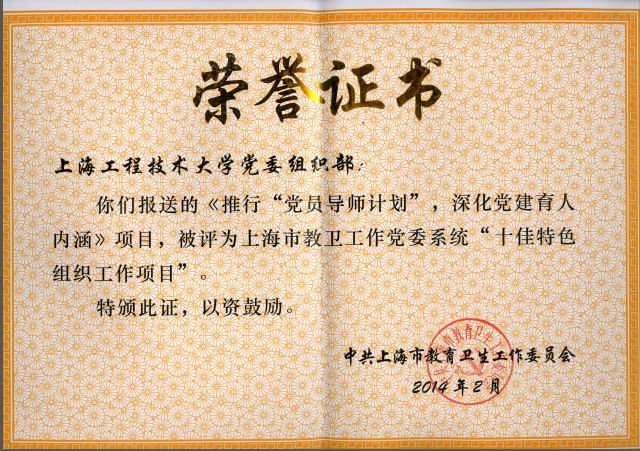 荣誉证书
上海工程技术大学党委组织部：
你们报送的《推行“党员导师计划”，深化党建育人
内涵》项目，被评为上海市教卫工作党委系统“十佳特色
组织工作项目”。
特颁此证，以资鼓励。
中共上海市教育卫生工作委员会
2014年2月